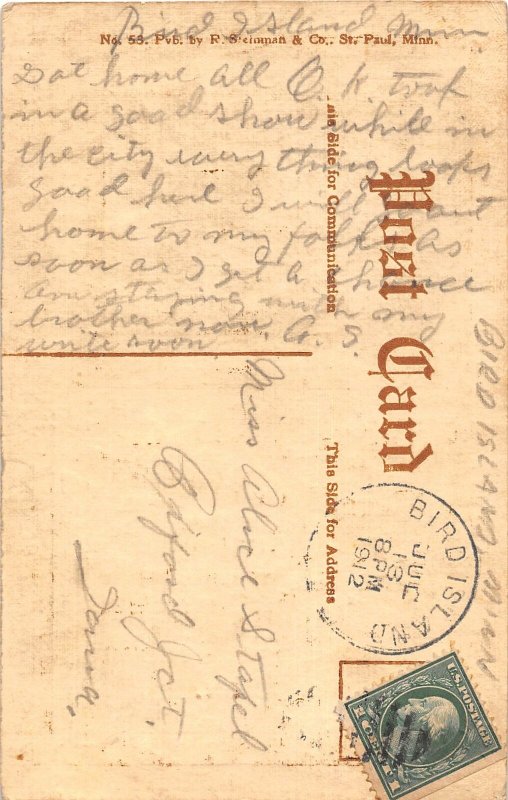 Bird Island, Minn.
No. 53. Pub. by R. Steinman & Co., St. Paul, Minn.
Got home all O. K. took
in a good show while in
the city every thing looks
good here I will go out
home to my folks as
soon as I get a chance
am staying with my
brother now. A. S.
write soon
This Side for Communication
Post Card
This Side for Address
BIRD ISLAND MINN
Miss Alice Stapel
Jct.
Iowa.
BIRD ISLAND
8 PM
1912
U.S. POSTAGE
1 CENT 1